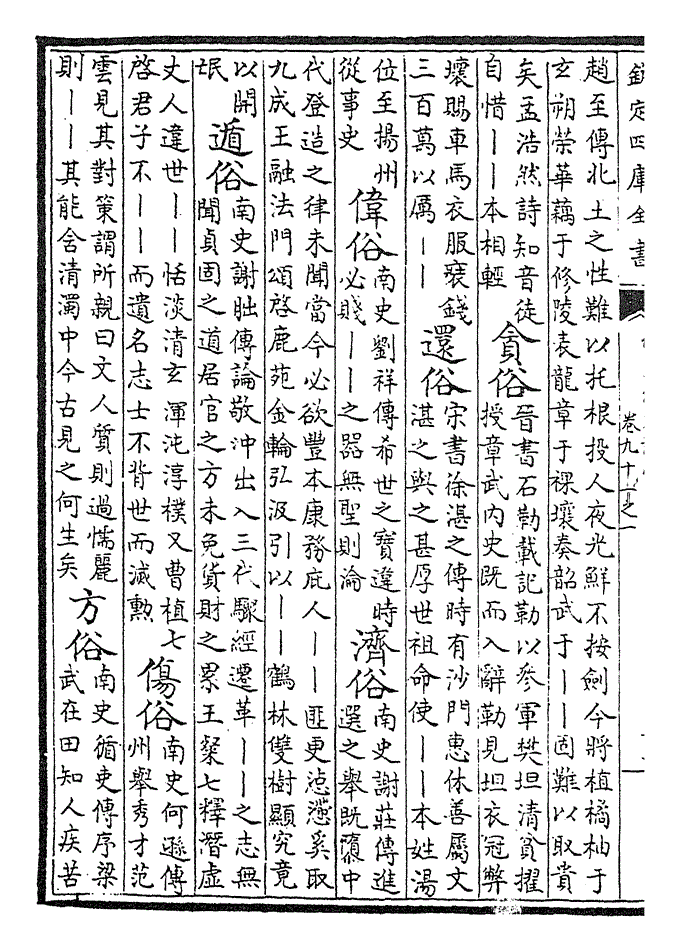 欽定四庫全書
卷九十一之一
趙至傳北土之性難以托根投人夜光鮮不按劍今將植橘柚于
玄朔榮華藕于修陵表龍章于裸壤奏韶武于丨丨固難以取貴
矣孟浩然詩知音徒
自惜丨丨本相輕
貪俗
晉書石勒載記勒以參軍樊坦清貧擢
授章武内史既而入辭勒見坦衣冠弊
壞賜車馬衣服裝錢
三百萬以厲丨丨
還俗
宋書徐湛之傳時有沙門惠休善屬文
湛之與之甚厚世祖命使丨丨本姓湯
位至揚州
從事史
偉俗
南史劉祥傳希世之寶違時
必賤丨丨之器無聖則淪
濟俗
南史謝莊傳進
選之舉既隳中
代登造之律未聞當今必欲豐本康務庇人丨丨匪更惉懘奚取
九成王融法門頌啓鹿苑金輪弘汲引以丨丨鶴林雙樹顯究竟
以開
氓
遁俗
南史謝朏傳論敬沖出入三代驟經遷革丨丨之志無
聞貞固之道居官之方未免貨財之累王粲七釋潛虛
丈人違世丨丨恬淡清玄渾沌淳樸又曹植七
啓君子不丨丨而遺名志士不背世而滅勲
傷俗
南史何遜傳
州舉秀才范
雲見其對策謂所親曰文人質則過懦麗
則丨丨其能含清濁中今古見之何生矣
方俗
南史循吏傳序梁
武在田知人疾苦